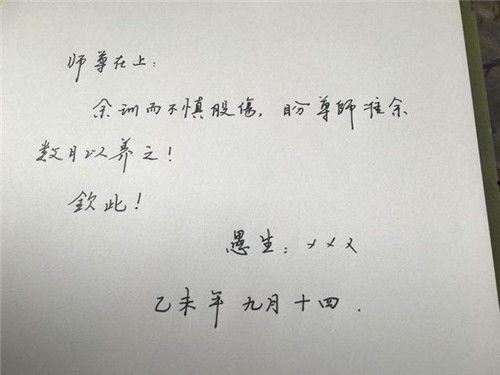 师尊在上:
余训而不慎股傷,盼尊師准余
数月以养之!
欽此!
愚生:×××
乙未年九月十四.